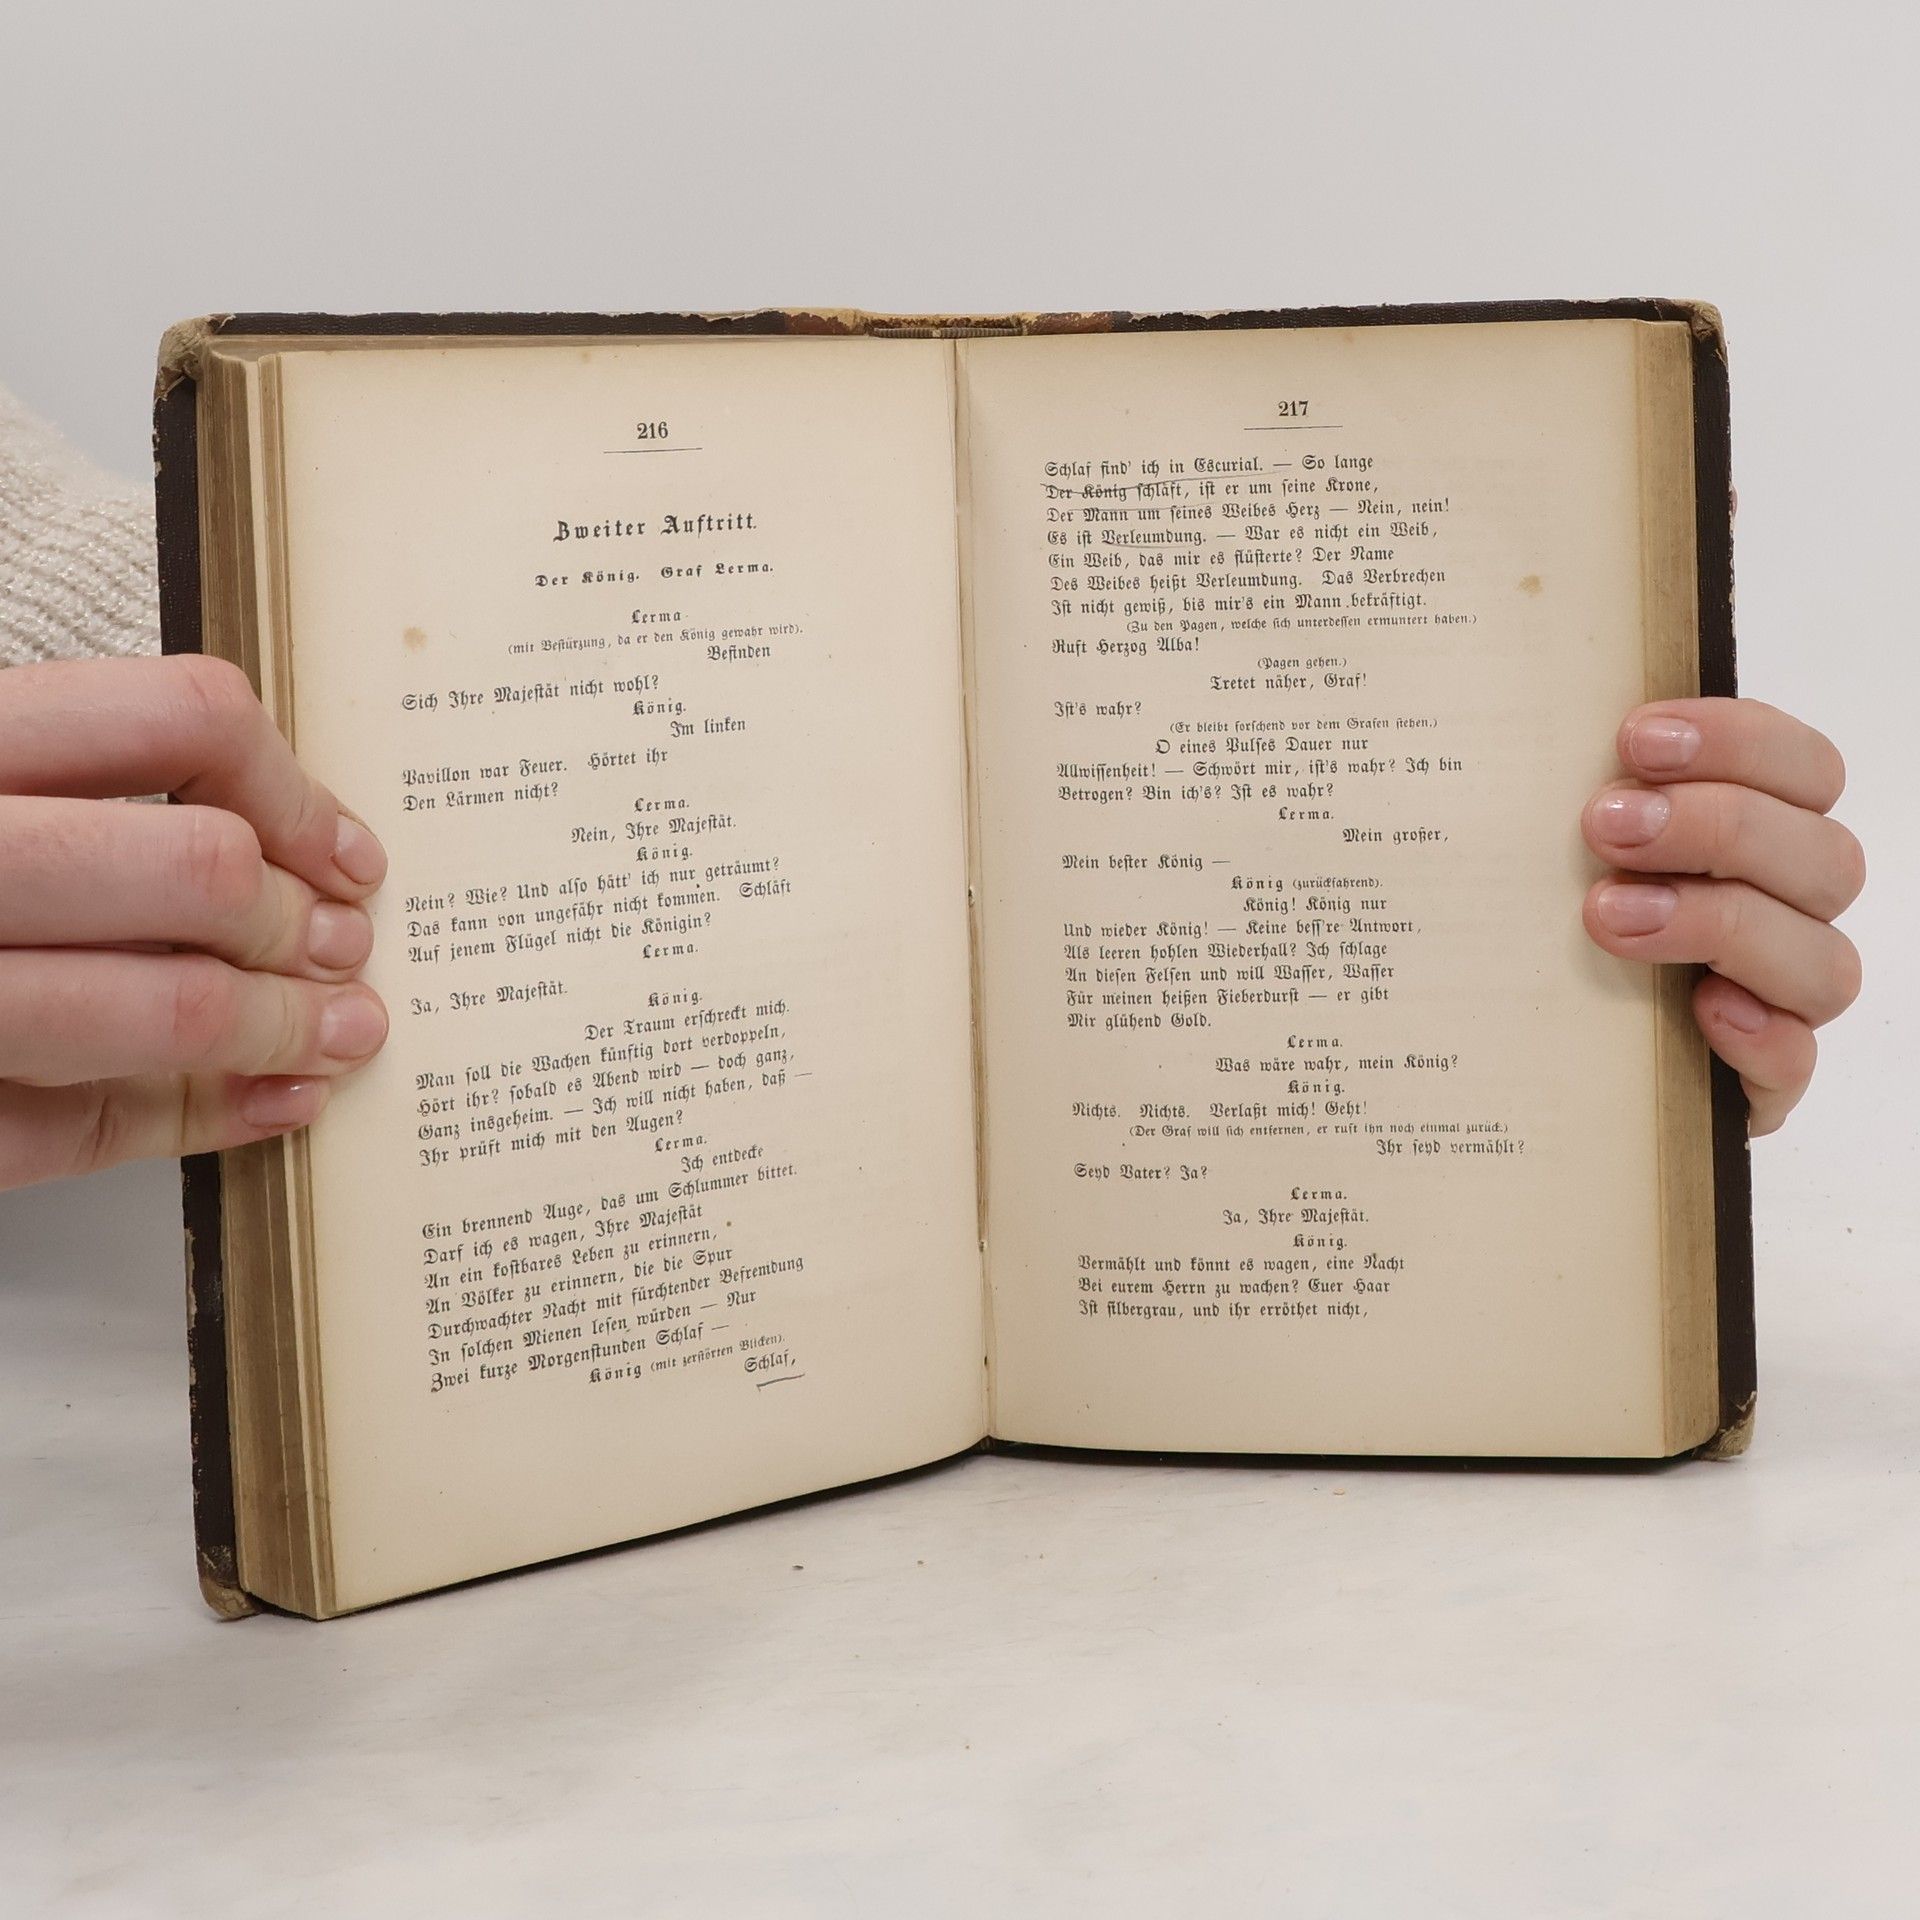 216
Zweiter Auftritt.
Der König. Graf Lerma.
Lerma
(mit Bestürzung, da er den König gewahr wird).
Befinden
Sich Ihre Majestät nicht wohl?
König.
Im linken
Pavillon war Feuer. Hörtet ihr
Den Lärmen nicht?
Lerma.
Nein, Ihre Majestät.
König.
Nein? Wie? Und also hätt' ich nur geträumt?
Das kann von ungefähr nicht kommen. Schläft
Auf jenem Flügel nicht die Königin?
Lerma.
Ja, Ihre Majestät.
König.
Der Traum erschreckt mich.
Man soll die Wachen künftig dort verdoppeln,
Hört ihr? sobald es Abend wird — doch ganz,
Ganz insgeheim. — Ich will nicht haben, daß —
Ihr prüft mich mit den Augen?
Lerma.
Ich entdecke
Ein brennend Auge, das um Schlummer bittet.
Darf ich es wagen, Ihre Majestät
An ein kostbares Leben zu erinnern,
An Völker zu erinnern, die die Spur
Durchwachter Nacht mit fürchtender Befremdung
In solchen Mienen lesen würden — Nur
Zwei kurze Morgenstunden Schlaf —
König (mit zerstörten Blicken).
Schlaf,
217
Schlaf find' ich in Escurial. — So lange
Der König schläft, ist er um seine Krone,
Der Mann um seines Weibes Herz — Nein, nein!
Es ist Verleumdung. — War es nicht ein Weib,
Ein Weib, das mir es flüsterte? Der Name
Des Weibes heißt Verleumdung. Das Verbrechen
Ist nicht gewiß, bis mir's ein Mann bekräftigt.
(Zu den Pagen, welche sich unterdessen ermuntert haben.)
Ruft Herzog Alba!
(Pagen gehen.)
Tretet näher, Graf!
Ist's wahr?
(Er bleibt forschend vor dem Grafen stehen.)
O eines Pulses Dauer nur
Allwissenheit! — Schwört mir, ist's wahr? Ich bin
Betrogen? Bin ich's? Ist es wahr?
Lerma.
Mein großer,
Mein bester König —
König (zurückfahrend).
König! König nur
Und wieder König! — Keine bess're Antwort,
Als leeren hohlen Wiederhall? Ich schlage
An diesen Felsen und will Wasser, Wasser
Für meinen heißen Fieberdurst — er gibt
Mir glühend Gold.
Lerma.
Was wäre wahr, mein König?
König.
Nichts. Nichts. Verlaßt mich! Geht!
(Der Graf will sich entfernen, er ruft ihn noch einmal zurück.)
Ihr seyd vermählt?
Seyd Vater? Ja?
Lerma.
Ja, Ihre Majestät.
König.
Vermählt und könnt es wagen, eine Nacht
Bei eurem Herrn zu wachen? Euer Haar
Ist silbergrau, und ihr erröthet nicht,